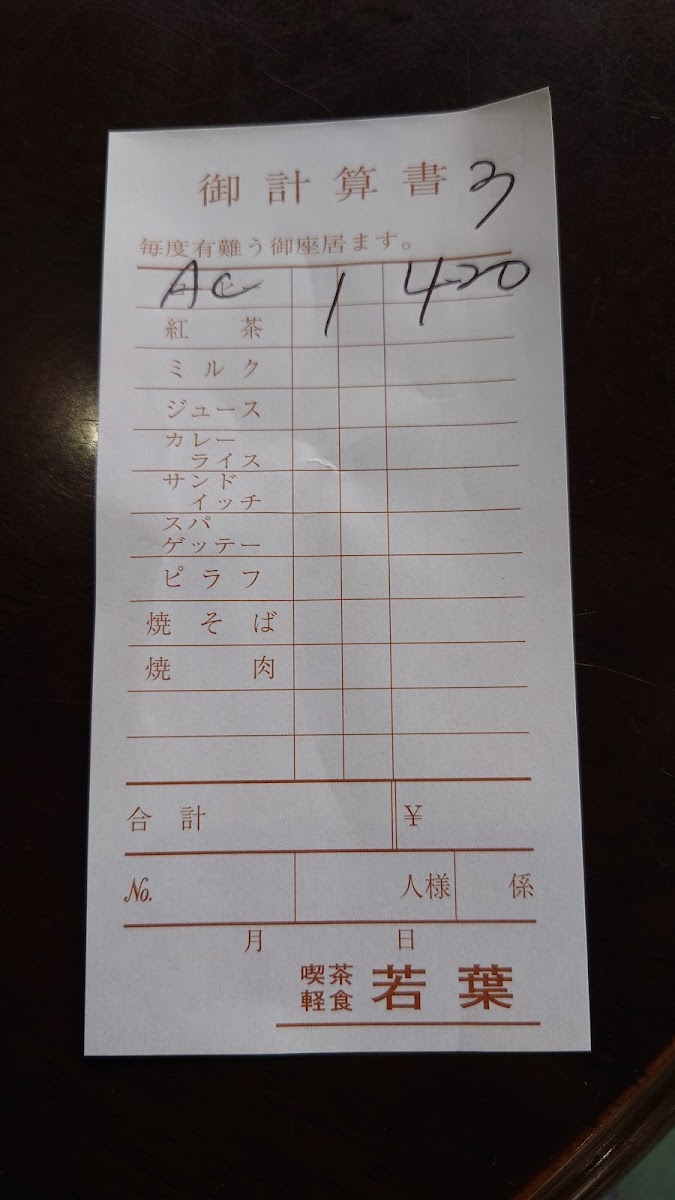 御計算書 3
毎度有難う御座居ます。
AC 1 420
紅茶
ミルク
ジュース
カレー
ライス
サンド
イッチ
スパ
ゲッテー
ピラフ
焼そば
焼肉
合計 ¥
No. 人様 係
月 日
喫茶
軽食 若葉